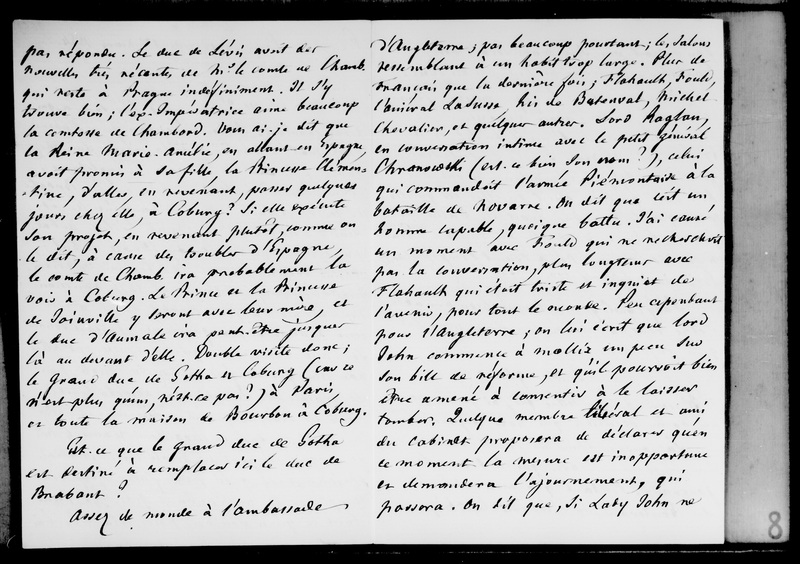 pas répondre. Le duc de Lévis avait des
nouvelles très récentes de Mr le comte de Chamb.
qui reste à Prague indéfiniment. Il s'y
trouve bien ; l'ex-Impératrice aime beaucoup
la comtesse de Chambord. Vous ai-je dit que
la Reine Marie-Amélie, en allant en Espagne,
avoit promis à sa fille, la Princesse Clémen-
-tine, d'aller, en revenant, passer quelques
jours chez elle, à Coburg ? Si elle exécute
son projet, en revenant plutôt, comme on
le dit, à cause des troubles d'Espagne,
le comte de Chamb. ira probablement la
voir à Coburg. Le Prince et la Princesse
de Joinville y seront avec leur mère, et
le duc d'Aumale ira peut-être jusques
là au devant d'elle. Double visite donc ;
le Grand duc de Gotha et Coburg (car ce
n'est plus qu'un, n'est-ce pas ?) à Paris
et toute la maison de Bourbon à Coburg.
Est-ce que le Grand duc de Gotha
est destiné à remplacer ici le duc de
Brabant ?
Assez de monde à l'ambassade
d'Angleterre ; pas beaucoup pourtant ; les salons
ressemblent à un habit trop large. Plus de
Français que la dernière fois ; Flahault, Fould,
l'amiral La Susse, his de Butenval, Michel
Chevalier, et quelques autres. Lord Raglan,
en conversation intime avec le petit général
Chranowski (est-ce bien son nom ?), celui
qui commandoit l'armée Piémontaise à la
bataille de Novarre. On dit que c'est un
homme capable, quoique battu. J'ai causé
un moment avec Fould qui ne recherchoit
pas la conversation, plus longtems avec
Flahault qui était triste et inquiet de
l'avenir, pour tout le monde. Peu cependant
pour l'Angleterre ; on lui écrit que lord
John commence à mollir un peu sur
son bill de réforme, et qu'il pourroit bien
être amené à consentir à le laisser
tomber. Quelque membre libéral et ami
du cabinet proposera de déclarer qu'en
ce moment la mesure est inopportune
et demandera l'ajournement, qui
passera. On dit que, si Lady John ne
8